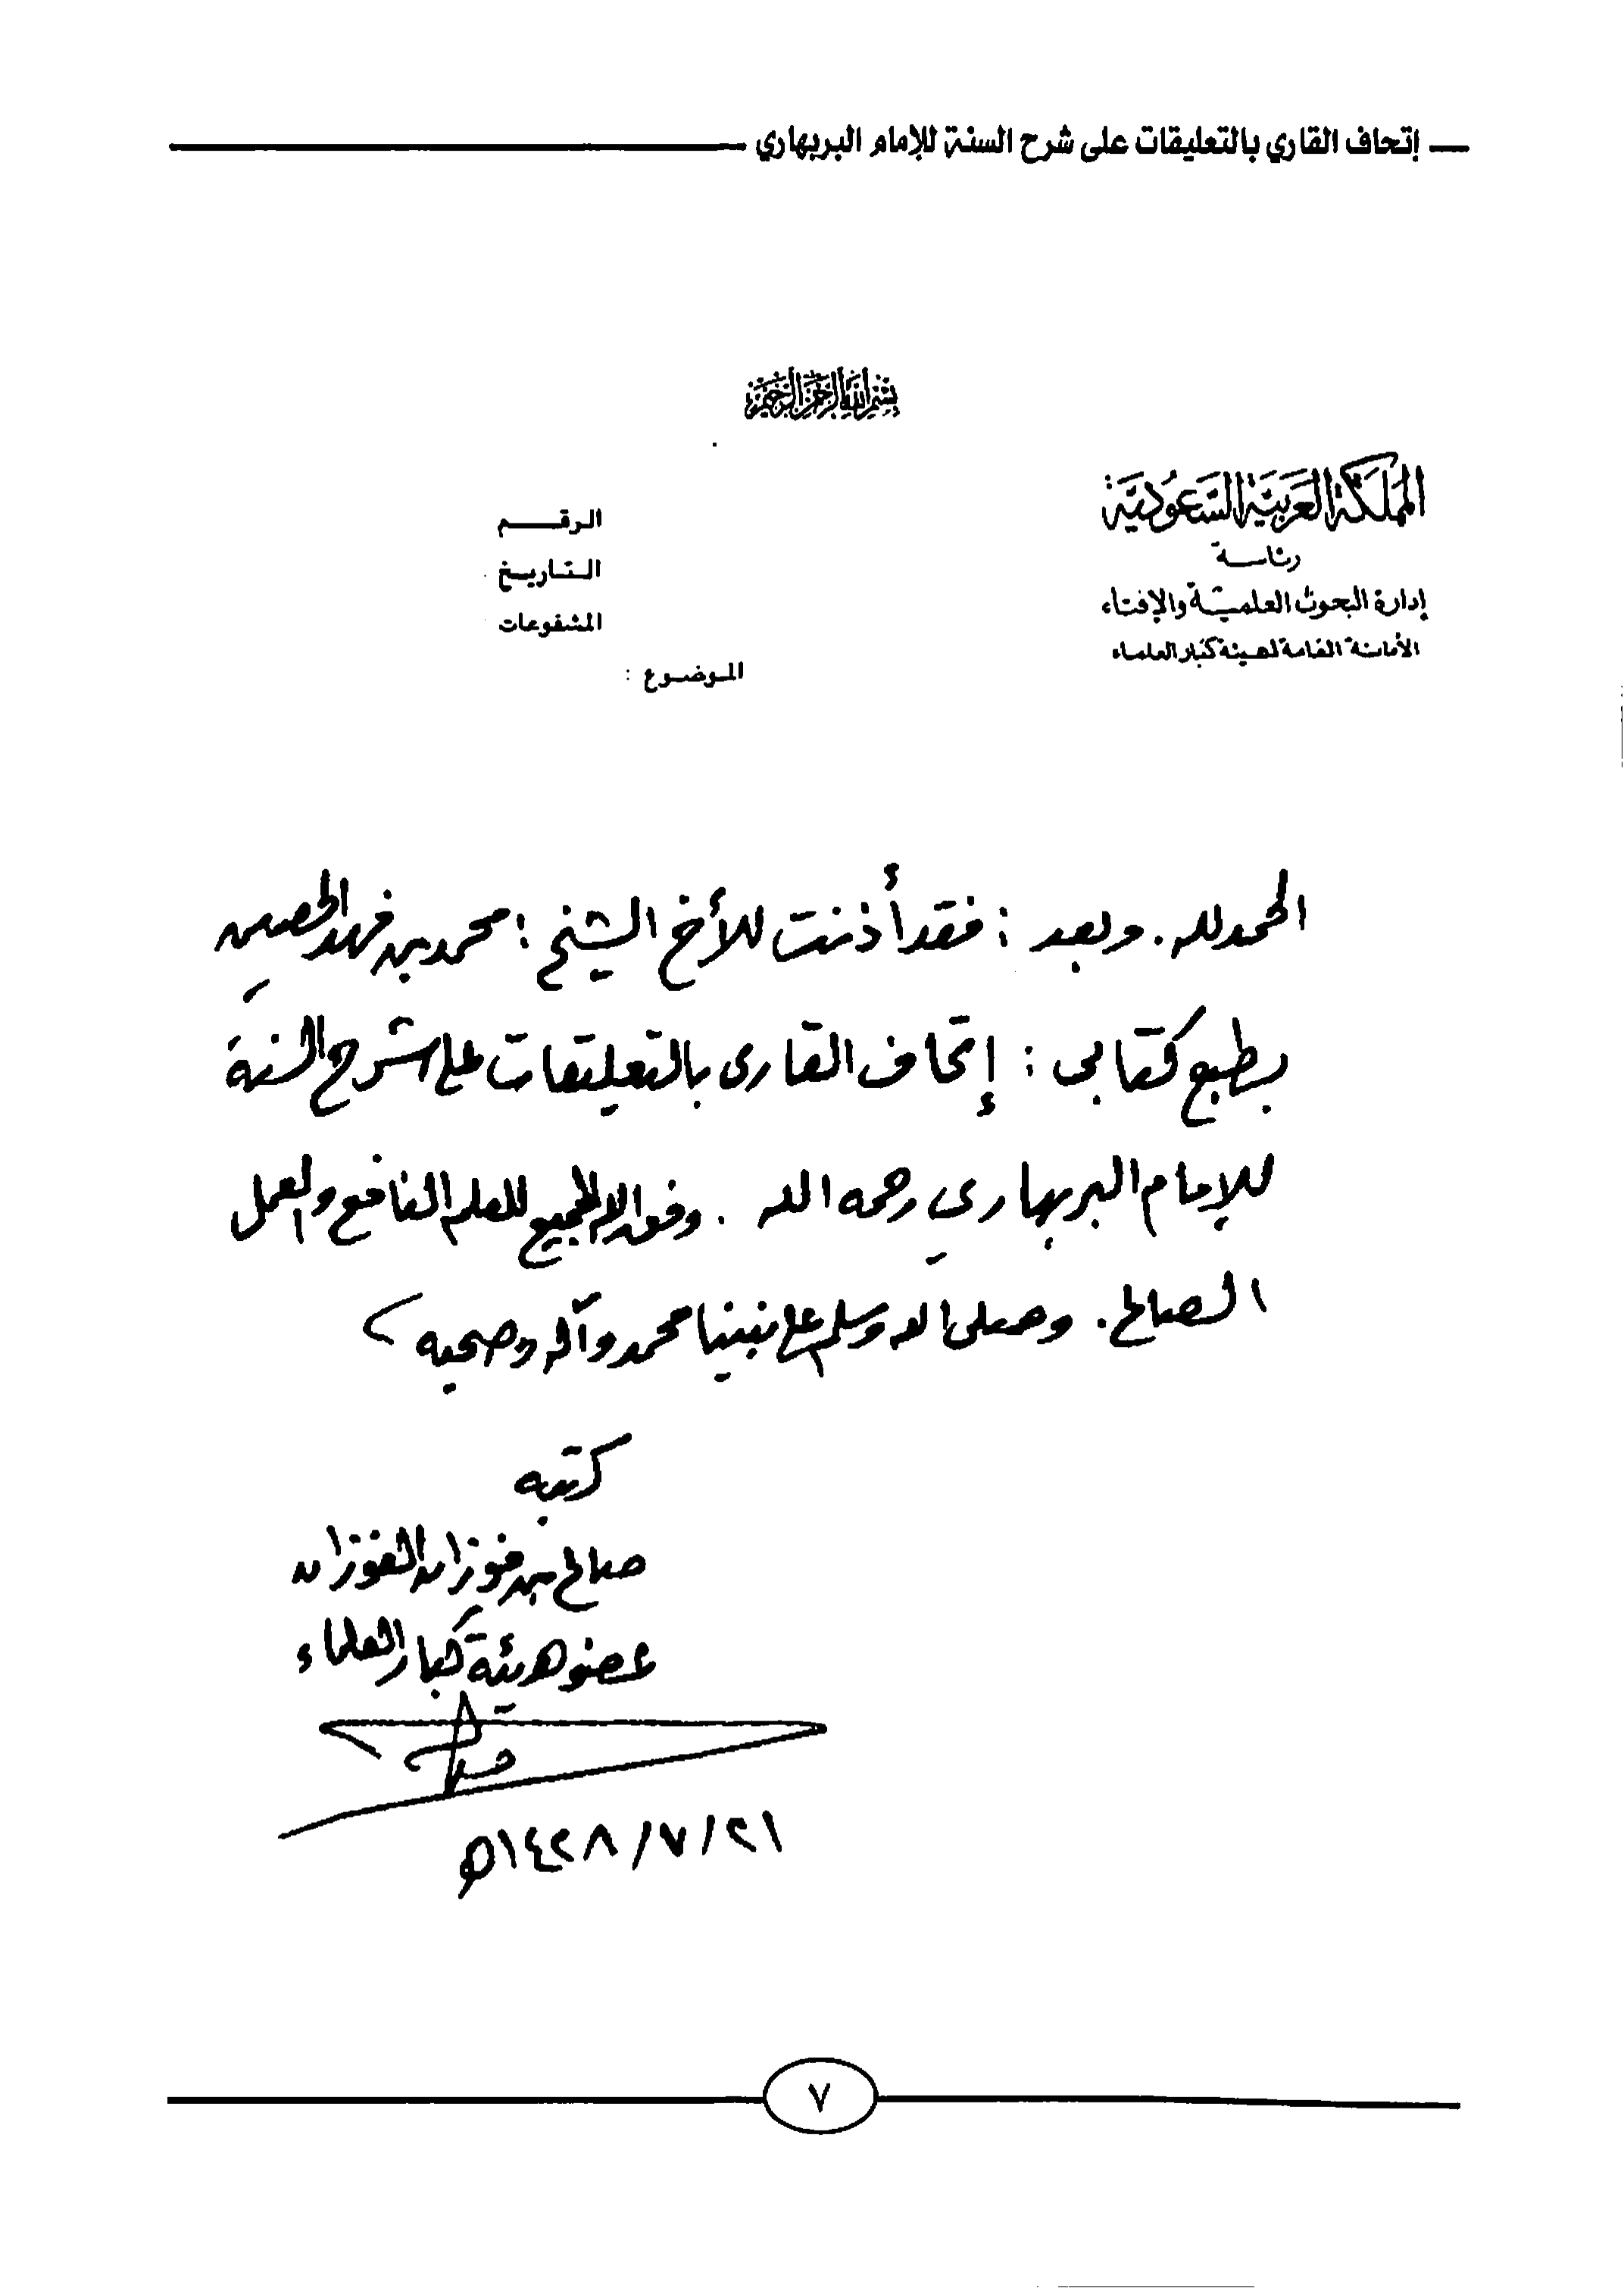 إتحاف القاري بالتعليقات على شرح السنة للإمام البربهاري
بسم الله الرحمن الرحيم
المملكة العربية السعودية
رئاسة
إدارة البحوث العلمية والإفتاء
الأمانة العامة لهيئة كبار العلماء
الرقم
التاريخ
المشفوعات
الموضوع :
الحمد لله . وبعد : فقد أذنت للأخ الشيخ : محمد بن فهد الحصين
بطبع كتابي : إتحاف القارى بالتعليقات على شرح السنة
للإمام البربهاري رحمه الله . وفق الله الجميع للعلم النافع والعمل
الصالح . وصلى الله وسلم على نبينا محمد وآله وصحبه
كتبه
صالح بن فوزان الفوزان
عضو هيئة كبار العلماء
صالح
٢١/٧/١٤٢٨ه
٧